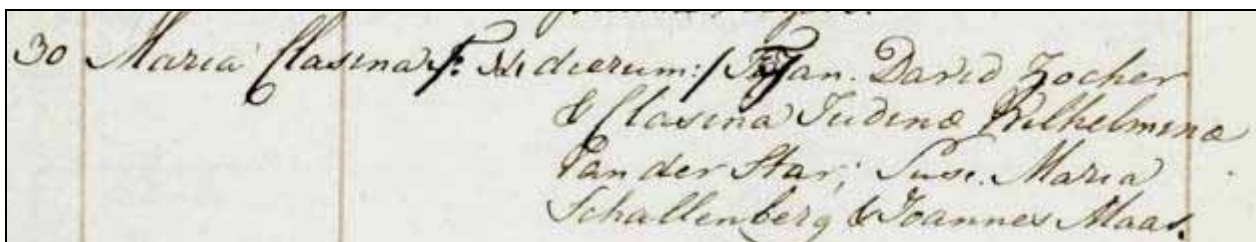 30 Maria Clasina /: XI dierum:/ F. Jan. David Zocher
& Clasina Judina Wilhelmina
Van der Star; Susc. Maria
Schallenberg & Joannes Maas.